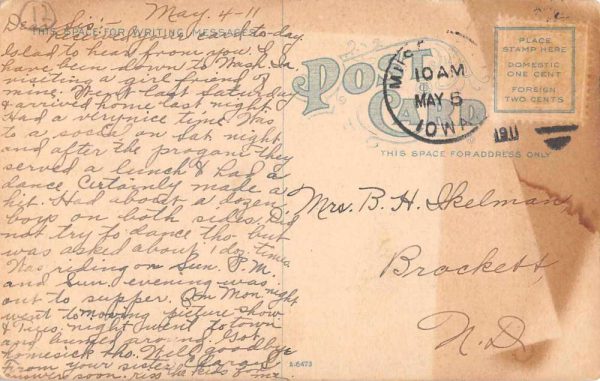 13
May. 4-11
Dear Sis:-
to-day.
THIS SPACE FOR WRITING MESSAGES
Glad to hear from you. I
have been down to Wash. Ia
visiting a girl friend of
mine. Went last Saturday
& arrived home last night
Had a very nice time. Was
to a social on Sat night
and after the program they
served a lunch & had a
dance. Certainly made a
hit. Had about a dozen
boys on both sides. Did
not try to dance tho but
was asked about 1 doz. times
Was riding on Sun. P.M.
and Sun. evening was
out to supper. On Mon. night
went to moving picture show
& Tues. night went to town
and bummed around. Got
homesick tho. Well goodbye
From your sister
answer soon. kiss the kids for me.
POST CARD
10 AM
MAY 5
IOWA
1911
PLACE
STAMP HERE
DOMESTIC
ONE CENT
FOREIGN
TWO CENTS
THIS SPACE FOR ADDRESS ONLY
Mrs. B. H. Ikelman,
Brockett,
N.D.